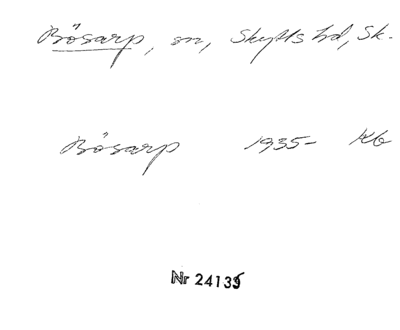 Bösarp, sn, Skytts hd, Sk.
Bösarp 1935- Kb
Nr 24135